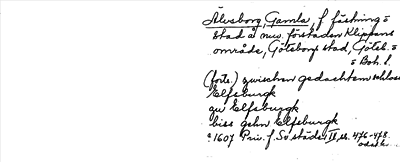 Älvsborg, Gamla, f fästning =
stad å nuv. förstaden Klippans
område, Göteborgs stad, Göteb. =
= Boh. l.
(forts.) zwischen gedachtem schloss
Elfsburgk
zu Elfsburgk
biss gehn Elfsburgk
1607 Priv. f. Sv städer II s. 476-478.